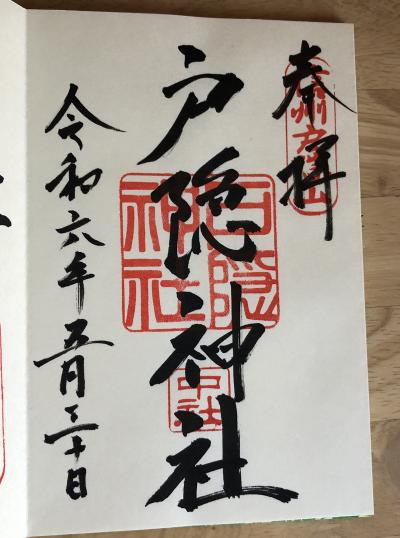 奉拝
戸隠神社
戸隠
神社
中社
令和六年五月三十日